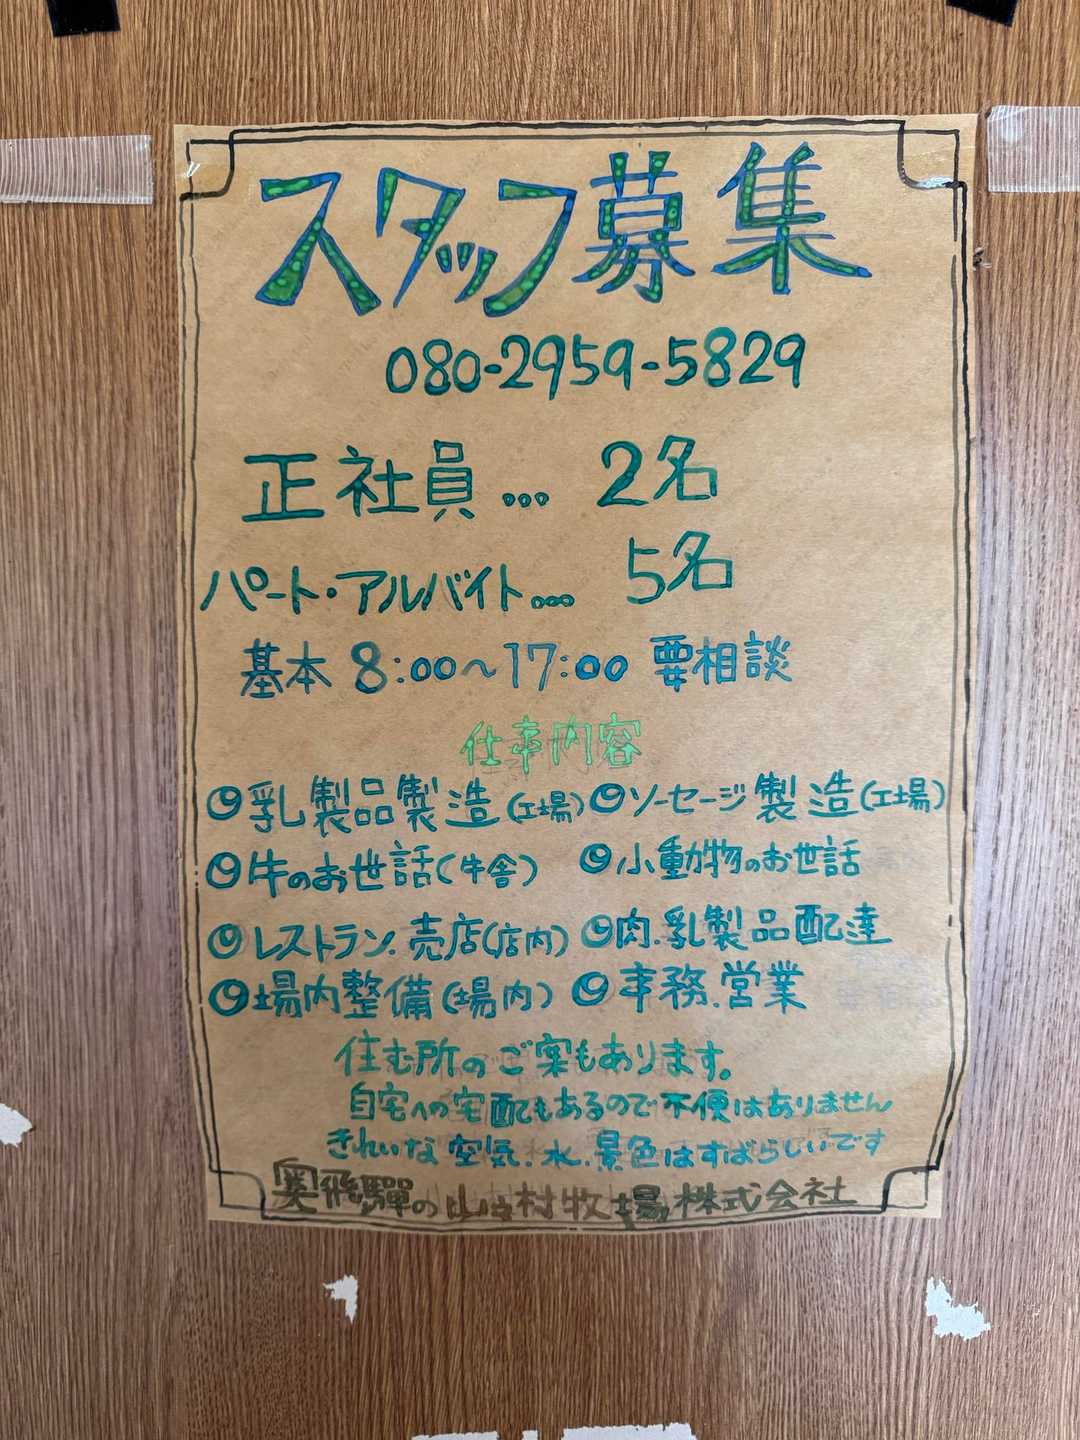 スタッフ募集
080-2959-5829
正社員... 2名
パート・アルバイト... 5名
基本 8:00～17:00 要相談
仕事内容
◎乳製品製造(工場) ◎ソーセージ製造(工場)
◎牛のお世話(牛舎) ◎小動物のお世話
◎レストラン.売店(店内) ◎肉.乳製品配達
◎場内整備(場内) ◎事務.営業
住む所のご案もあります。
自宅への宅配もあるので不便はありません
きれいな空気.水.景色はすばらしいです
奥飛騨の山之村牧場株式会社